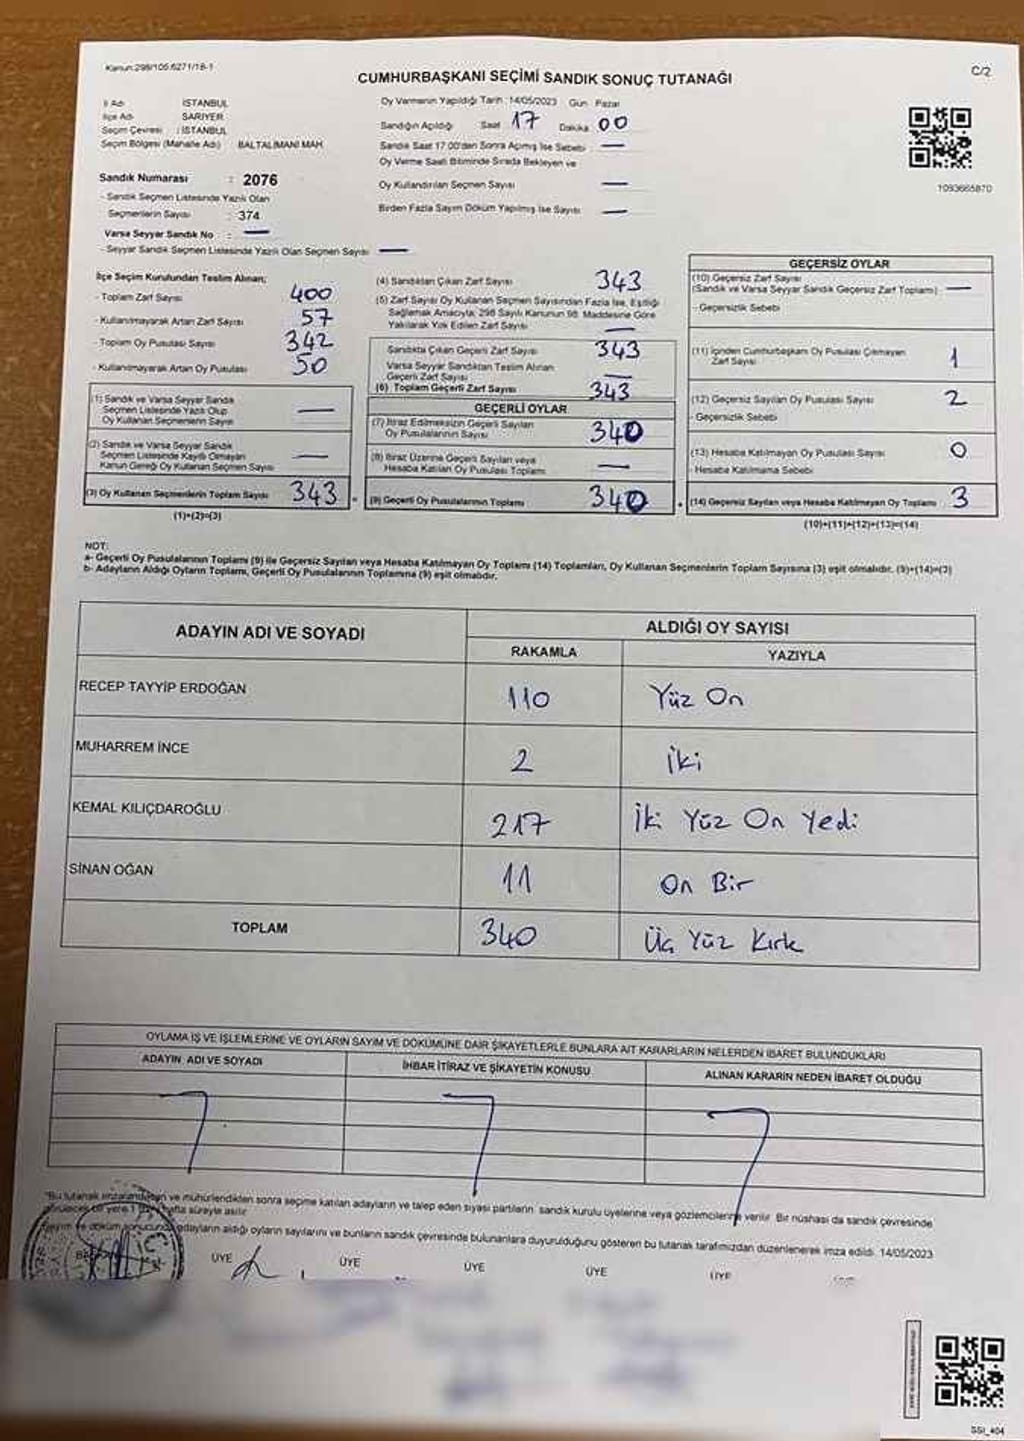 Kanun:298/105.6271/18-1
CUMHURBAŞKANI SEÇİMİ SANDIK SONUÇ TUTANAĞI
C/2
İl Adı İSTANBUL
İlçe Adı SARIYER
Seçim Çevresi : İSTANBUL
Seçim Bölgesi (Mahalle Adı) BALTALİMANI MAH.
Sandık Numarası : 2076
- Sandık Seçmen Listesinde Yazılı Olan
Seçmenlerin Sayısı : 374
Varsa Seyyar Sandık No : —
- Seyyar Sandık Seçmen Listesinde Yazılı Olan Seçmen Sayısı —
Oy Vermenin Yapıldığı Tarih : 14/05/2023 Gün Pazar
Sandığın Açıldığı Saat 17 Dakika 00
Sandık Saat 17.00'den Sonra Açılmış İse Sebebi : —
Oy Verme Saati Bitiminde Sırada Bekleyen ve
Oy Kullandırılan Seçmen Sayısı —
Birden Fazla Sayım Döküm Yapılmış İse Sayısı —
1093665870
İlçe Seçim Kurulundan Teslim Alınan;
- Toplam Zarf Sayısı 400
- Kullanılmayarak Artan Zarf Sayısı 57
- Toplam Oy Pusulası Sayısı 342
- Kullanılmayarak Artan Oy Pusulası 50
(1) Sandık ve Varsa Seyyar Sandık
Seçmen Listesinde Yazılı Olup
Oy Kullanan Seçmenlerin Sayısı —
(2) Sandık ve Varsa Seyyar Sandık
Seçmen Listesinde Kayıtlı Olmayan
Kanun Gereği Oy Kullanan Seçmen Sayısı —
(3) Oy Kullanan Seçmenlerin Toplam Sayısı 343
(1)+(2)=(3)
(4) Sandıktan Çıkan Zarf Sayısı 343
(5) Zarf Sayısı Oy Kullanan Seçmen Sayısından Fazla İse, Eşitliği
Sağlamak Amacıyla; 298 Sayılı Kanunun 98. Maddesine Göre
Yakılarak Yok Edilen Zarf Sayısı —
Sandıkta Çıkan Geçerli Zarf Sayısı 343
Varsa Seyyar Sandıktan Teslim Alınan
Geçerli Zarf Sayısı —
(6) Toplam Geçerli Zarf Sayısı 343
GEÇERLİ OYLAR
(7) İtiraz Edilmeksizin Geçerli Sayılan
Oy Pusulalarının Sayısı 340
(8) İtiraz Üzerine Geçerli Sayılan veya
Hesaba Katılan Oy Pusulası Toplamı —
(9) Geçerli Oy Pusulalarının Toplamı 340
GEÇERSİZ OYLAR
(10) Geçersiz Zarf Sayısı
(Sandık ve Varsa Seyyar Sandık Geçersiz Zarf Toplamı) —
- Geçersizlik Sebebi
(11) İçinden Cumhurbaşkanı Oy Pusulası Çıkmayan
Zarf Sayısı 1
(12) Geçersiz Sayılan Oy Pusulası Sayısı 2
- Geçersizlik Sebebi
(13) Hesaba Katılmayan Oy Pusulası Sayısı 0
- Hesaba Katılmama Sebebi
(14) Geçersiz Sayılan veya Hesaba Katılmayan Oy Toplamı 3
(10)+(11)+(12)+(13)=(14)
NOT:
a- Geçerli Oy Pusulalarının Toplamı (9) ile Geçersiz Sayılan veya Hesaba Katılmayan Oy Toplamı (14) Toplamları, Oy Kullanan Seçmenlerin Toplam Sayısına (3) eşit olmalıdır. (9)+(14)=(3)
b- Adayların Aldığı Oyların Toplamı, Geçerli Oy Pusulalarının Toplamına (9) eşit olmalıdır.
ADAYIN ADI VE SOYADI
ALDIĞI OY SAYISI
RAKAMLA YAZIYLA
RECEP TAYYİP ERDOĞAN 110 Yüz On
MUHARREM İNCE 2 İki
KEMAL KILIÇDAROĞLU 217 İki Yüz On Yedi
SİNAN OĞAN 11 On Bir
TOPLAM 340 Üç Yüz Kırk
OYLAMA İŞ VE İŞLEMLERİNE VE OYLARIN SAYIM VE DÖKÜMÜNE DAİR ŞİKAYETLERLE BUNLARA AİT KARARLARIN NELERDEN İBARET BULUNDUKLARI
ADAYIN ADI VE SOYADI İHBAR İTİRAZ VE ŞİKAYETİN KONUSU ALINAN KARARIN NEDEN İBARET OLDUĞU
"Bu tutanak imzalandıktan ve mühürlendikten sonra seçime katılan adayların ve talep eden siyasi partilerin sandık kurulu üyelerine veya gözlemcilerine verilir. Bir nüshası da sandık çevresinde
görülecek bir yere 1 hafta süreyle asılır
Sayım ve döküm sonucunda adayların aldığı oyların sayılarını ve bunların sandık çevresinde bulunanlara duyurulduğunu gösteren bu tutanak tarafımızdan düzenlenerek imza edildi. 14/05/2023
BAŞKAN ÜYE ÜYE ÜYE ÜYE ÜYE
SSI_404